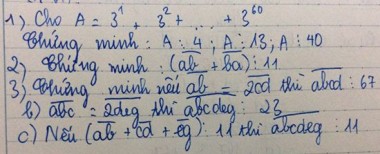 1) Cho A = 3¹ + 3² + ... + 3⁶⁰
Chứng minh : A ⋮ 4 ; A ⋮ 13 ; A ⋮ 40
2) Chứng minh : (a̅b̅ + b̅a̅) ⋮ 11
3) Chứng minh nếu a̅b̅ = 2c̅d̅ thì a̅b̅c̅d̅ ⋮ 67
b) a̅b̅c̅ = 2d̅e̅g̅ thì a̅b̅c̅d̅e̅g̅ ⋮ 23
c) Nếu (a̅b̅ + c̅d̅ + e̅g̅) ⋮ 11 thì a̅b̅c̅d̅e̅g̅ ⋮ 11